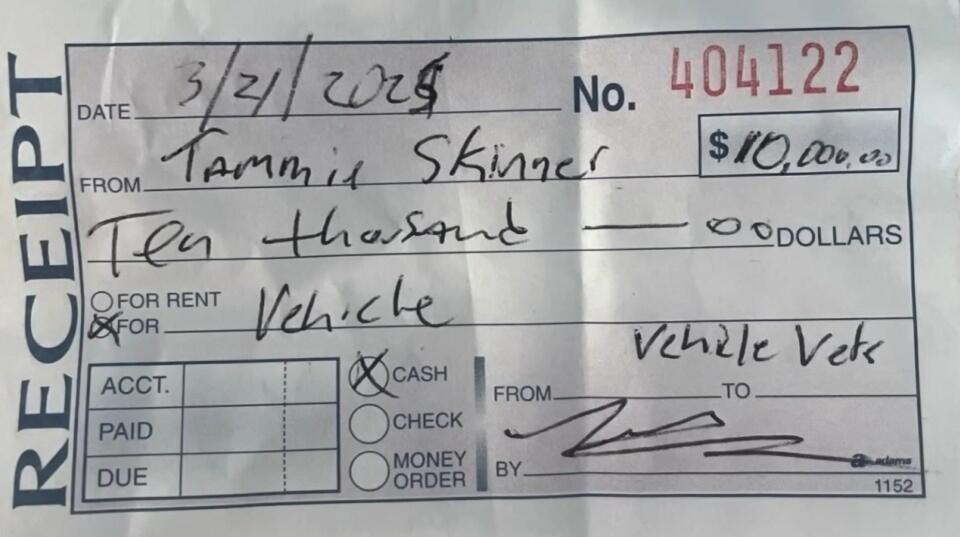 RECEIPT
DATE 3/21/2025 No. 404122
FROM Tammie Skinner $10,000.00
Ten thousand — 00 DOLLARS
FOR RENT
FOR Vehicle
Vehicle Vets
ACCT. CASH FROM TO
PAID CHECK
DUE MONEY ORDER BY
adams
1152